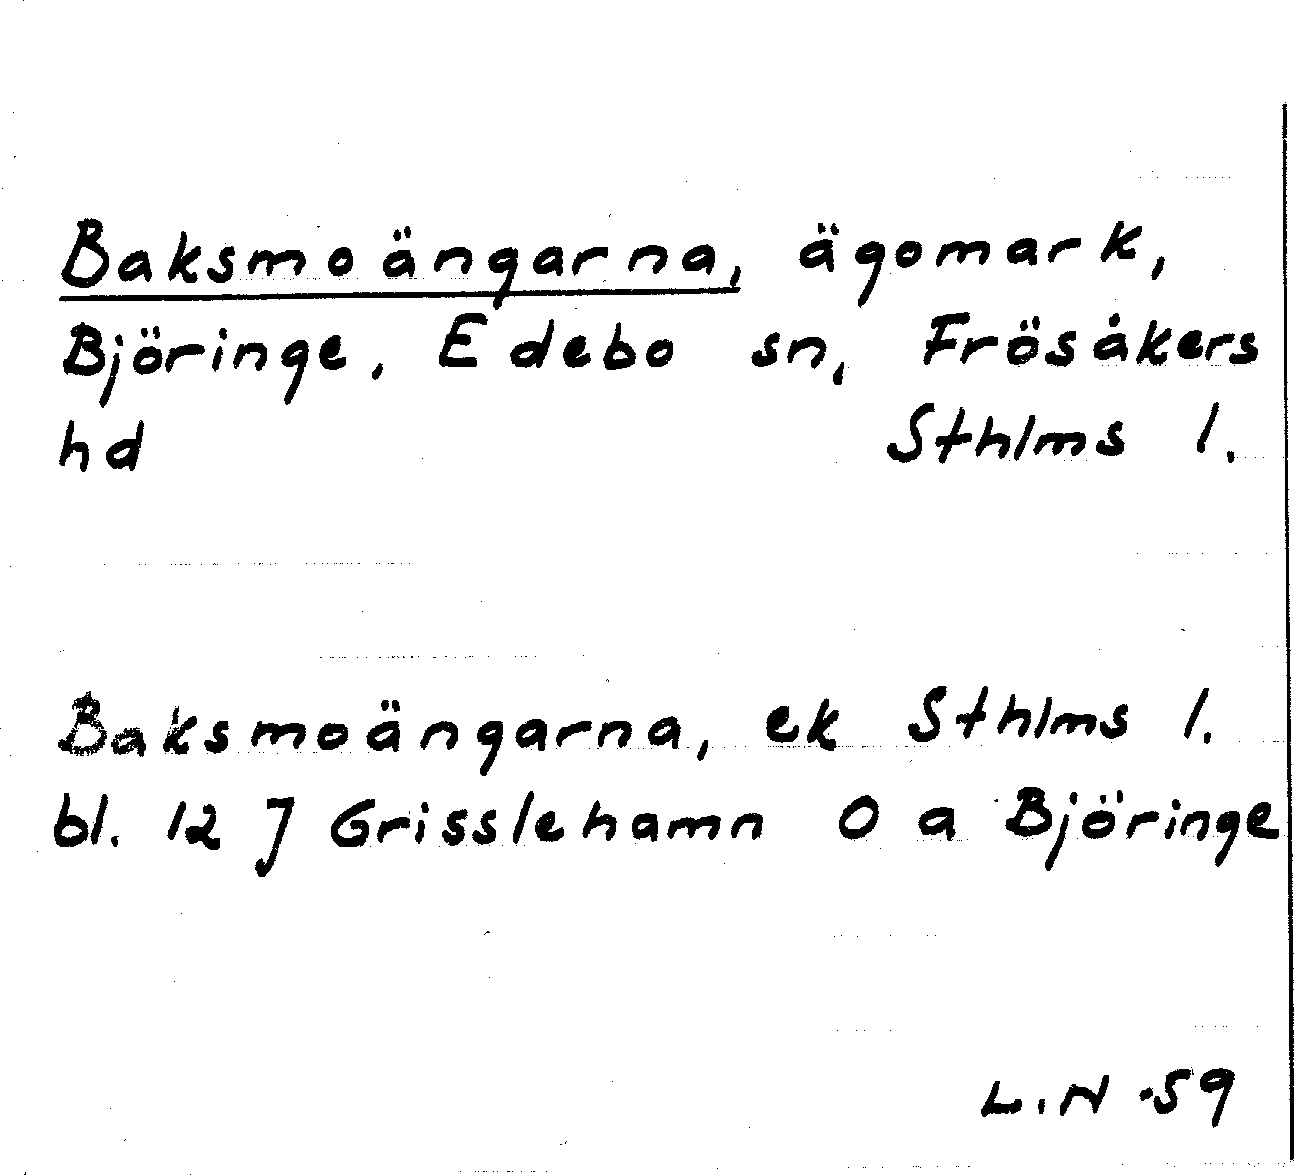 Baksmoängarna, ägomark,
Björinge, Edebo sn, Frösåkers
hd Sthlms l.
Baksmoängarna, ek Sthlms l.
bl. 12 J Grisslehamn O a Björinge
L.N -59